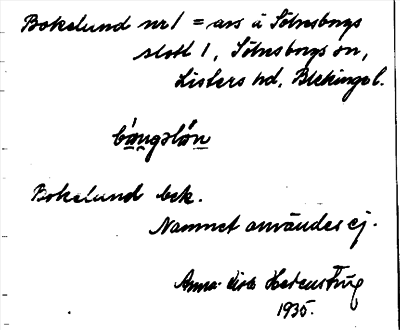 Bokelund nr 1 = ars à Sölvesborgs
slott 1, Sölvesborgs sn,
Listers hd, Blekinge l.
Bokelund bek.
Namnet användes ej.
Anna-Lisa
1935.